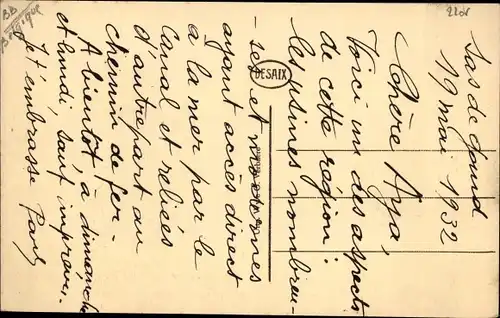 Sas de Gand
19 mai 1932
Chère Aya,
Voici un des aspects
de cette région:
les usines nombreu-
- ses et modernes
ayant accès direct
à la mer par le
canal et reliées
d'autre part au
chemin de fer.
A bientôt, à dimanche
et lundi, sauf imprévu.
Je t'embrasse Paul
DESAIX
BB
Belgique